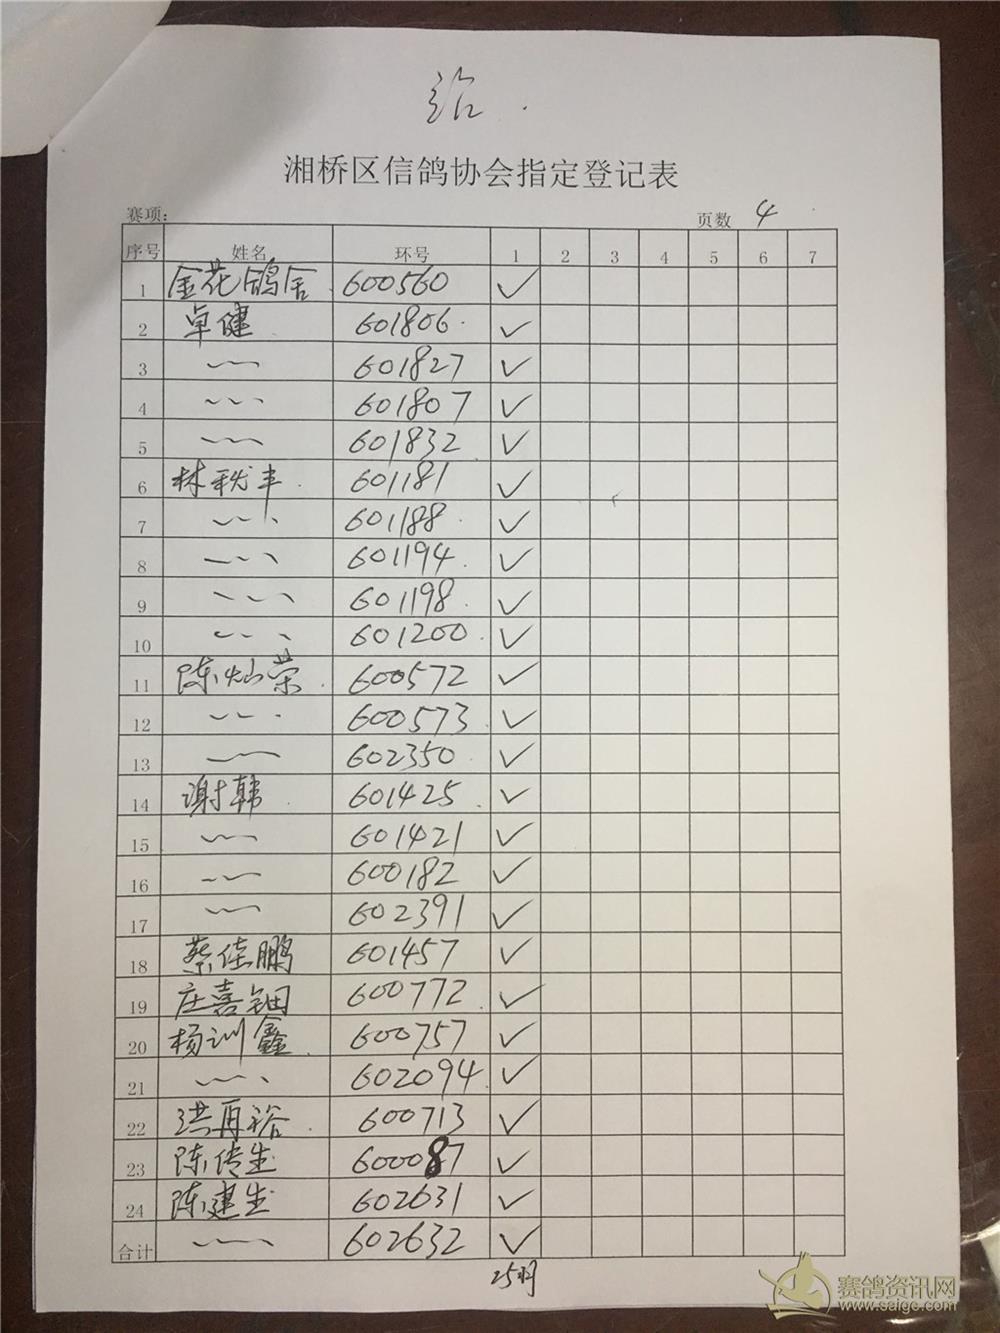 湘桥区信鸽协会指定登记表
赛项: 页数 4
序号 姓名 环号 1 2 3 4 5 6 7
1 金花鸽舍 600560 ✓
2 卓健 601806 ✓
3 〃 601827 ✓
4 〃 601807 ✓
5 〃 601832 ✓
6 林秋丰 601181 ✓
7 〃 601188 ✓
8 〃 601194 ✓
9 〃 601198 ✓
10 〃 601200 ✓
11 陈灿荣 600572 ✓
12 〃 600573 ✓
13 〃 602350 ✓
14 谢韩 601425 ✓
15 〃 601421 ✓
16 〃 600182 ✓
17 〃 602391 ✓
18 蔡佳鹏 601457 ✓
19 庄嘉钿 600772 ✓
20 杨训鑫 600757 ✓
21 〃 602094 ✓
22 洪再裕 600713 ✓
23 陈传生 600087 ✓
24 陈建生 602631 ✓
合计 〃 602632 ✓
25羽
赛鸽资讯网
www.saige.com